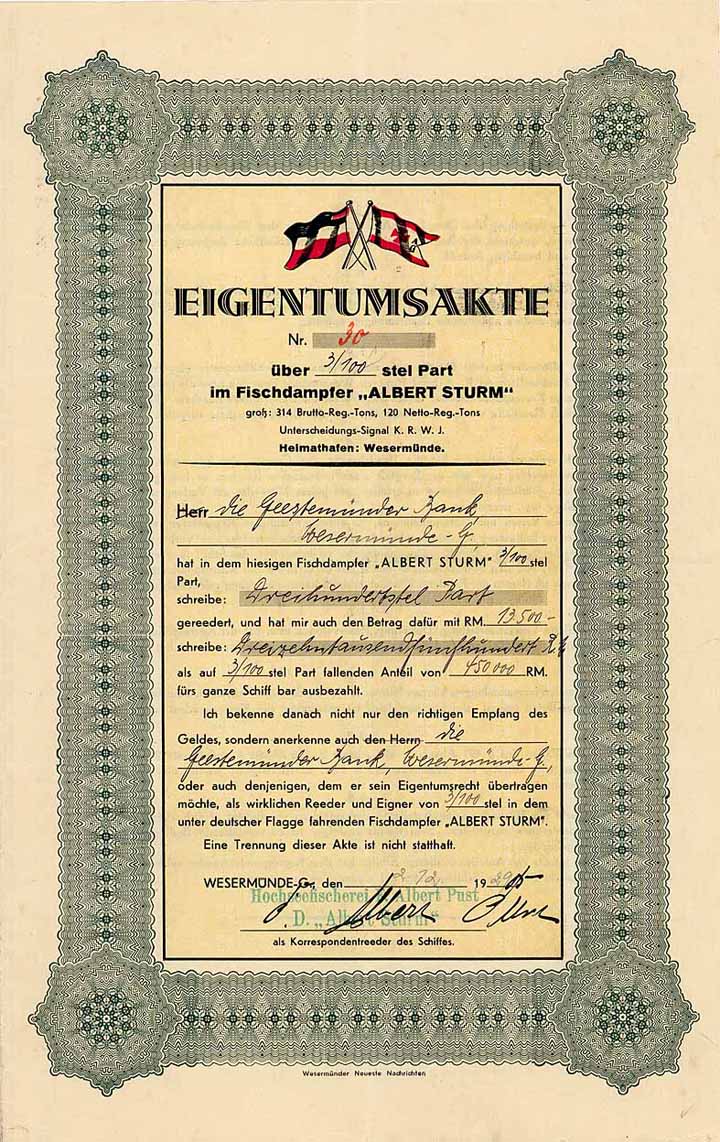 EIGENTUMSAKTE
Nr. 30
über 3/100 stel Part
im Fischdampfer „ALBERT STURM“
groß: 314 Brutto-Reg.-Tons, 120 Netto-Reg.-Tons
Unterscheidungs-Signal K. R. W. J.
Heimathafen: Wesermünde.
Herr die Geestemünder Bank,
Wesermünde-G.
hat in dem hiesigen Fischdampfer „ALBERT STURM“ 3/100 stel
Part,
schreibe: Dreihundertstel Part
gereedert, und hat mir auch den Betrag dafür mit RM. 13.500.-
schreibe: Dreizehntausendfünfhundert RM
als auf 3/100 stel Part fallenden Anteil von 450000 RM.
fürs ganze Schiff bar ausbezahlt.
Ich bekenne danach nicht nur den richtigen Empfang des
Geldes, sondern anerkenne auch den Herrn die
Geestemünder Bank, Wesermünde-G.,
oder auch denjenigen, dem er sein Eigentumsrecht übertragen
möchte, als wirklichen Reeder und Eigner von 3/100 stel in dem
unter deutscher Flagge fahrenden Fischdampfer „ALBERT STURM“.
Eine Trennung dieser Akte ist nicht statthaft.
WESERMÜNDE-G., den 2/12 19
Hochseefischerei Albert Pust
D. „Albert Sturm“
als Korrespondentreeder des Schiffes.
Wesermünder Neueste Nachrichten